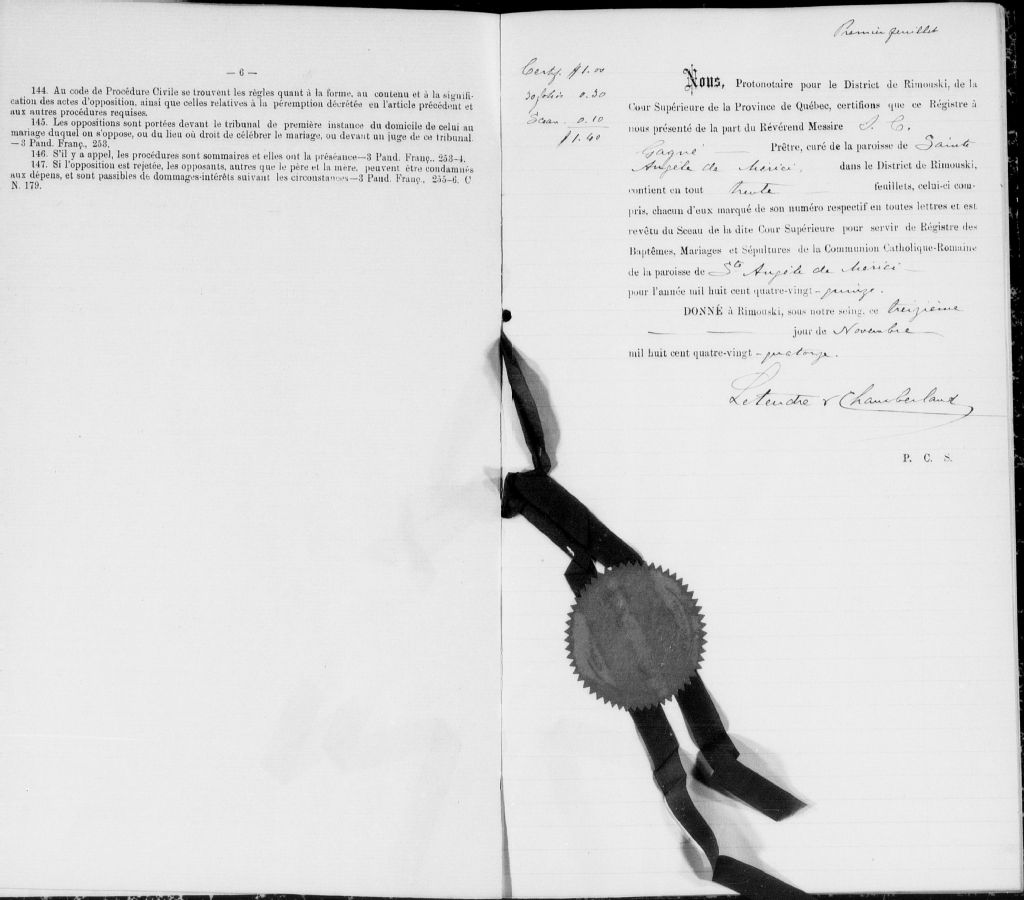 — 6 —
144. Au code de Procédure Civile se trouvent les règles quant à la forme, au contenu et à la signifi-
cation des actes d'opposition, ainsi que celles relatives à la péremption décrétée en l'article précédent et
aux autres procédures requises.
145. Les oppositions sont portées devant le tribunal de première instance du domicile de celui au
mariage duquel on s'oppose, ou du lieu où droit de célébrer le mariage, ou devant un juge de ce tribunal.
—3 Pand. Franç., 253.
146. S'il y a appel, les procédures sont sommaires et elles ont la préséance—3 Pand. Franç., 253-4.
147. Si l'opposition est rejetée, les opposants, autres que le père et la mère, peuvent être condamnés
aux dépens, et sont passibles de dommages-intérêts suivant les circonstances—3 Pand. Franç., 255-6. C
N. 179.
Premier feuillet
Certif. $1.00
30 folios 0.30
Sceau 0.10
$1.40
Nous, Protonotaire pour le District de Rimouski, de la
Cour Supérieure de la Province de Québec, certifions que ce Régistre à
nous présenté de la part du Révérend Messire J. C.
Gagné Prêtre, curé de la paroisse de Sainte
Angèle de Mérici, dans le District de Rimouski,
contient en tout trente feuillets, celui-ci com-
pris, chacun d'eux marqué de son numéro respectif en toutes lettres et est
revêtu du Sceau de la dite Cour Supérieure pour servir de Régistre des
Baptêmes, Mariages et Sépultures de la Communion Catholique-Romaine
de la paroisse de Ste Angèle de Mérici
pour l'année mil huit cent quatre-vingt-quinze.
DONNÉ à Rimouski, sous notre seing, ce treizième
jour de Novembre
mil huit cent quatre-vingt-quatorze.
Letendre & Chamberland
P. C. S.